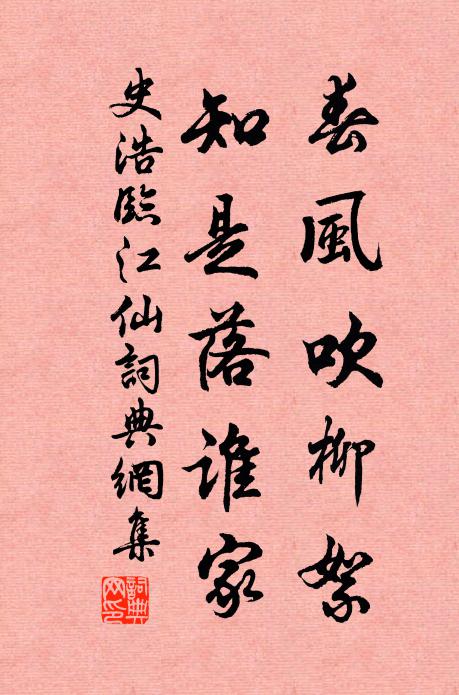 春風吹柳絮
知是落誰家
史浩臨江仙詞典網集
詞典網印